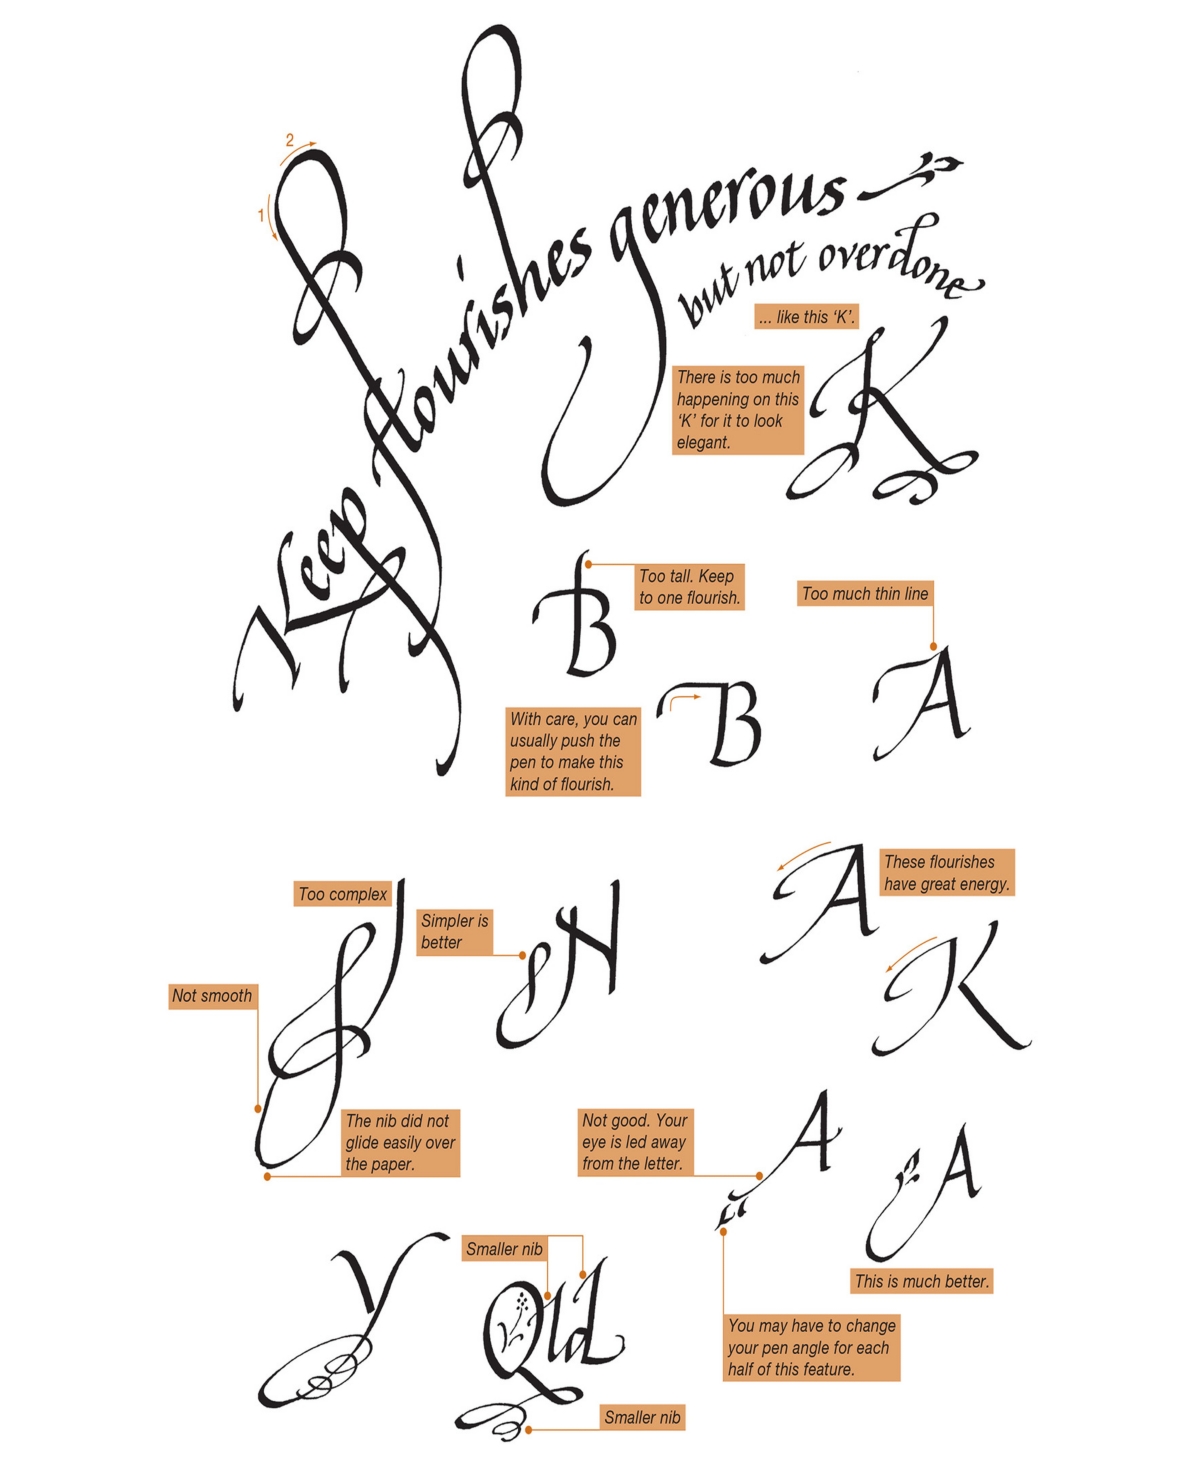 2
1
Keep flourishes generous
but not overdone
... like this ‘K’.
There is too much
happening on this
‘K’ for it to look
elegant.
K
Too tall. Keep
to one flourish.
B
Too much thin line
A
With care, you can
usually push the
pen to make this
kind of flourish.
B
A
These flourishes
have great energy.
K
Too complex
Simpler is
better
N
Not smooth
The nib did not
glide easily over
the paper.
Not good. Your
eye is led away
from the letter.
A
A
This is much better.
You may have to change
your pen angle for each
half of this feature.
Y
Smaller nib
Qld
Smaller nib